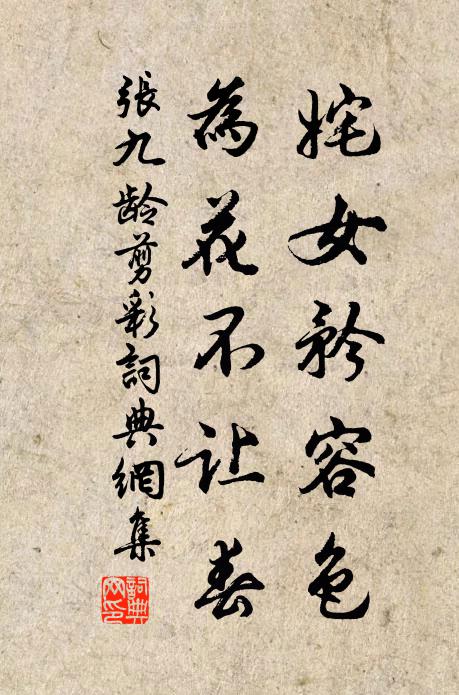 姹女矜容色
為花不让春
張九龄剪彩詞典網集
詞典网印